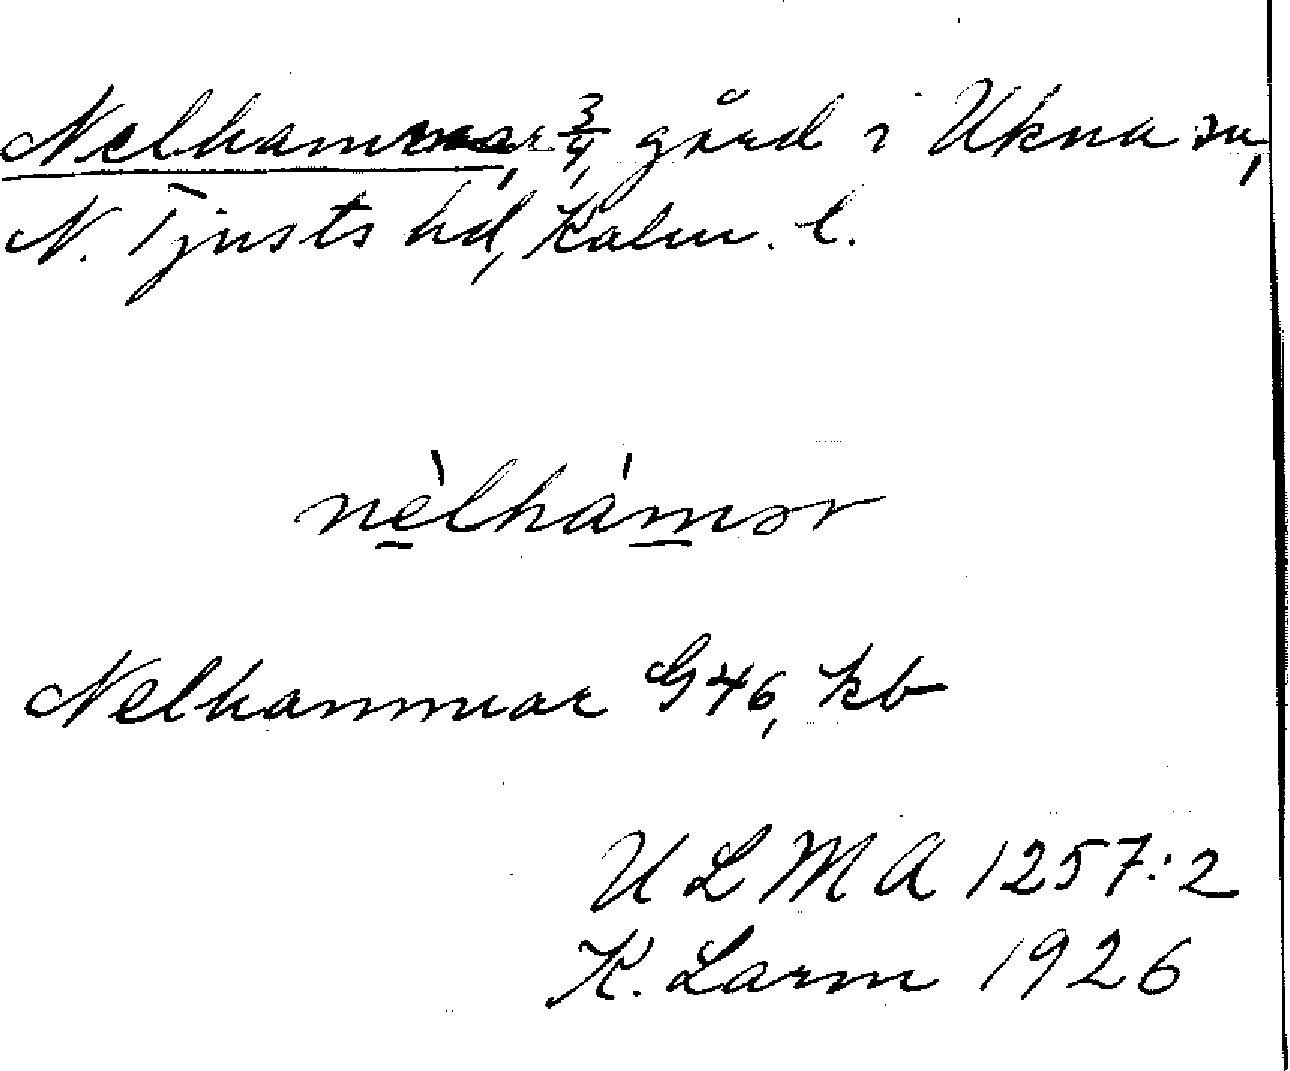 Nelhammar, 3/4, gård i Ukna sn,
N. Tjusts hd, Kalm. l.
nèlhámər
Nelhammar G46, kb
ULMA 1257:2
K. Larm 1926